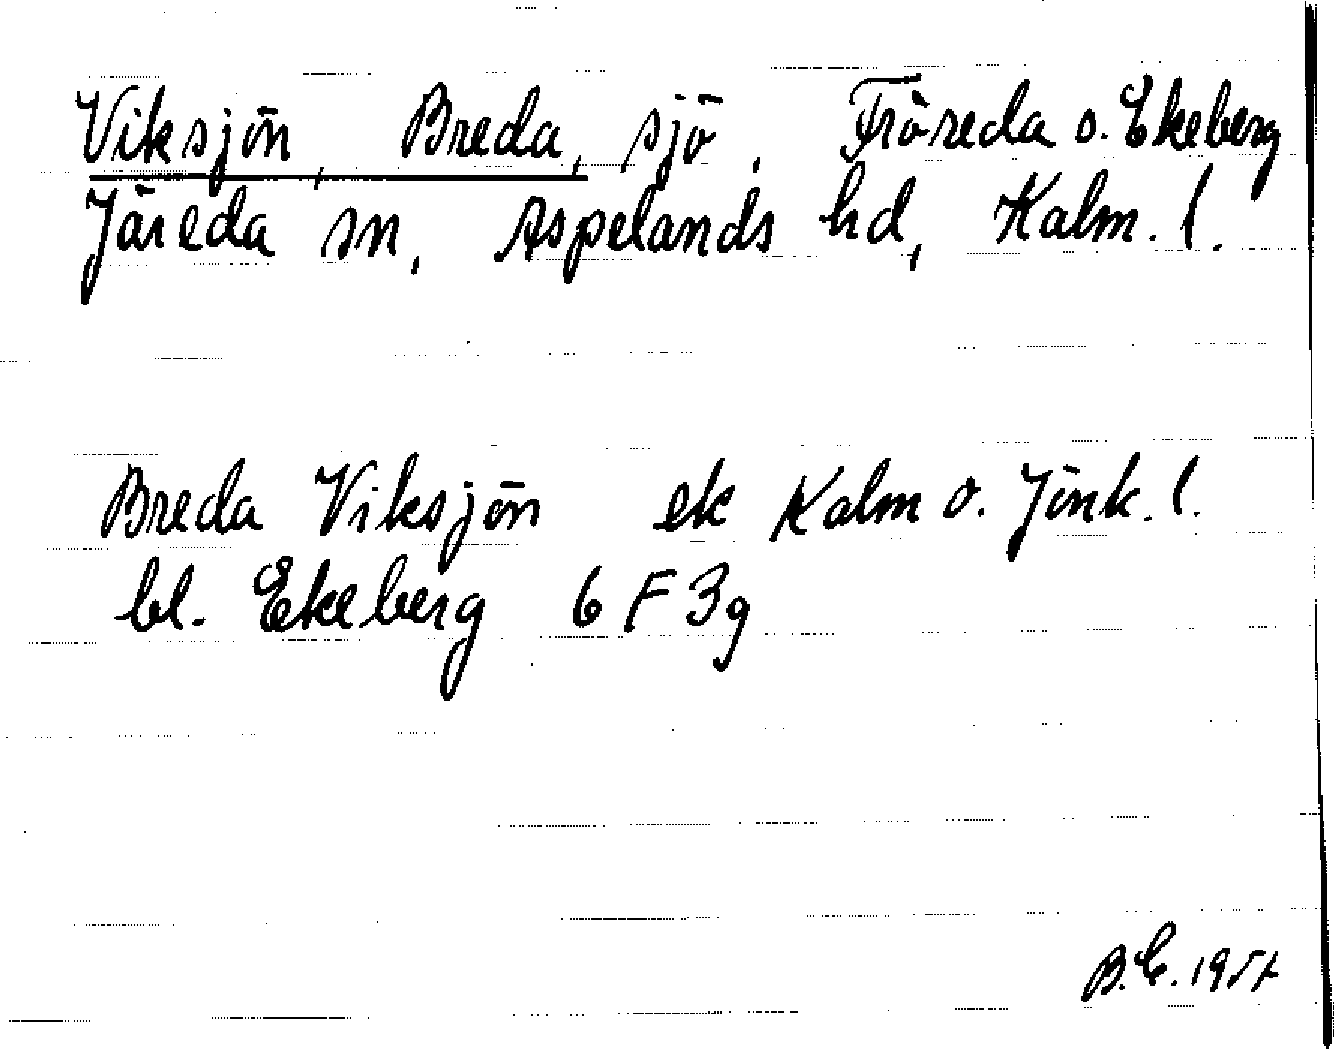 Viksjön, Breda, sjö, Fröreda o. Ekeberg
Järeda sn, Aspelands hd, Kalm. l.
Breda Viksjön ek Kalm o. Jönk. l.
bl. Ekeberg 6 F 3g
B.E. 1957